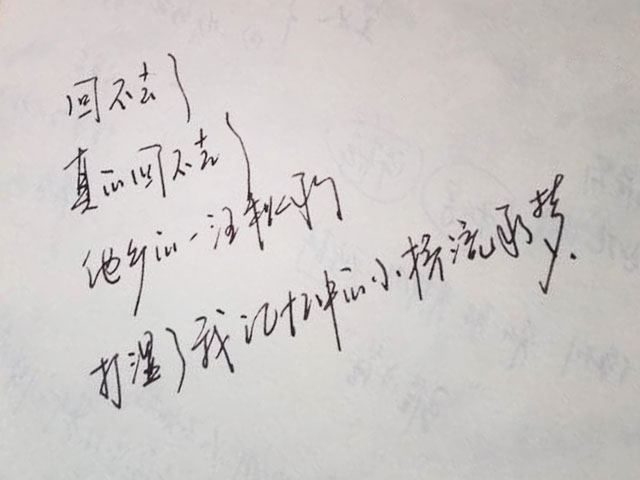 回不去了
真的回不去了
他乡的一汪秋水
打湿了我记忆中的小桥流水梦.